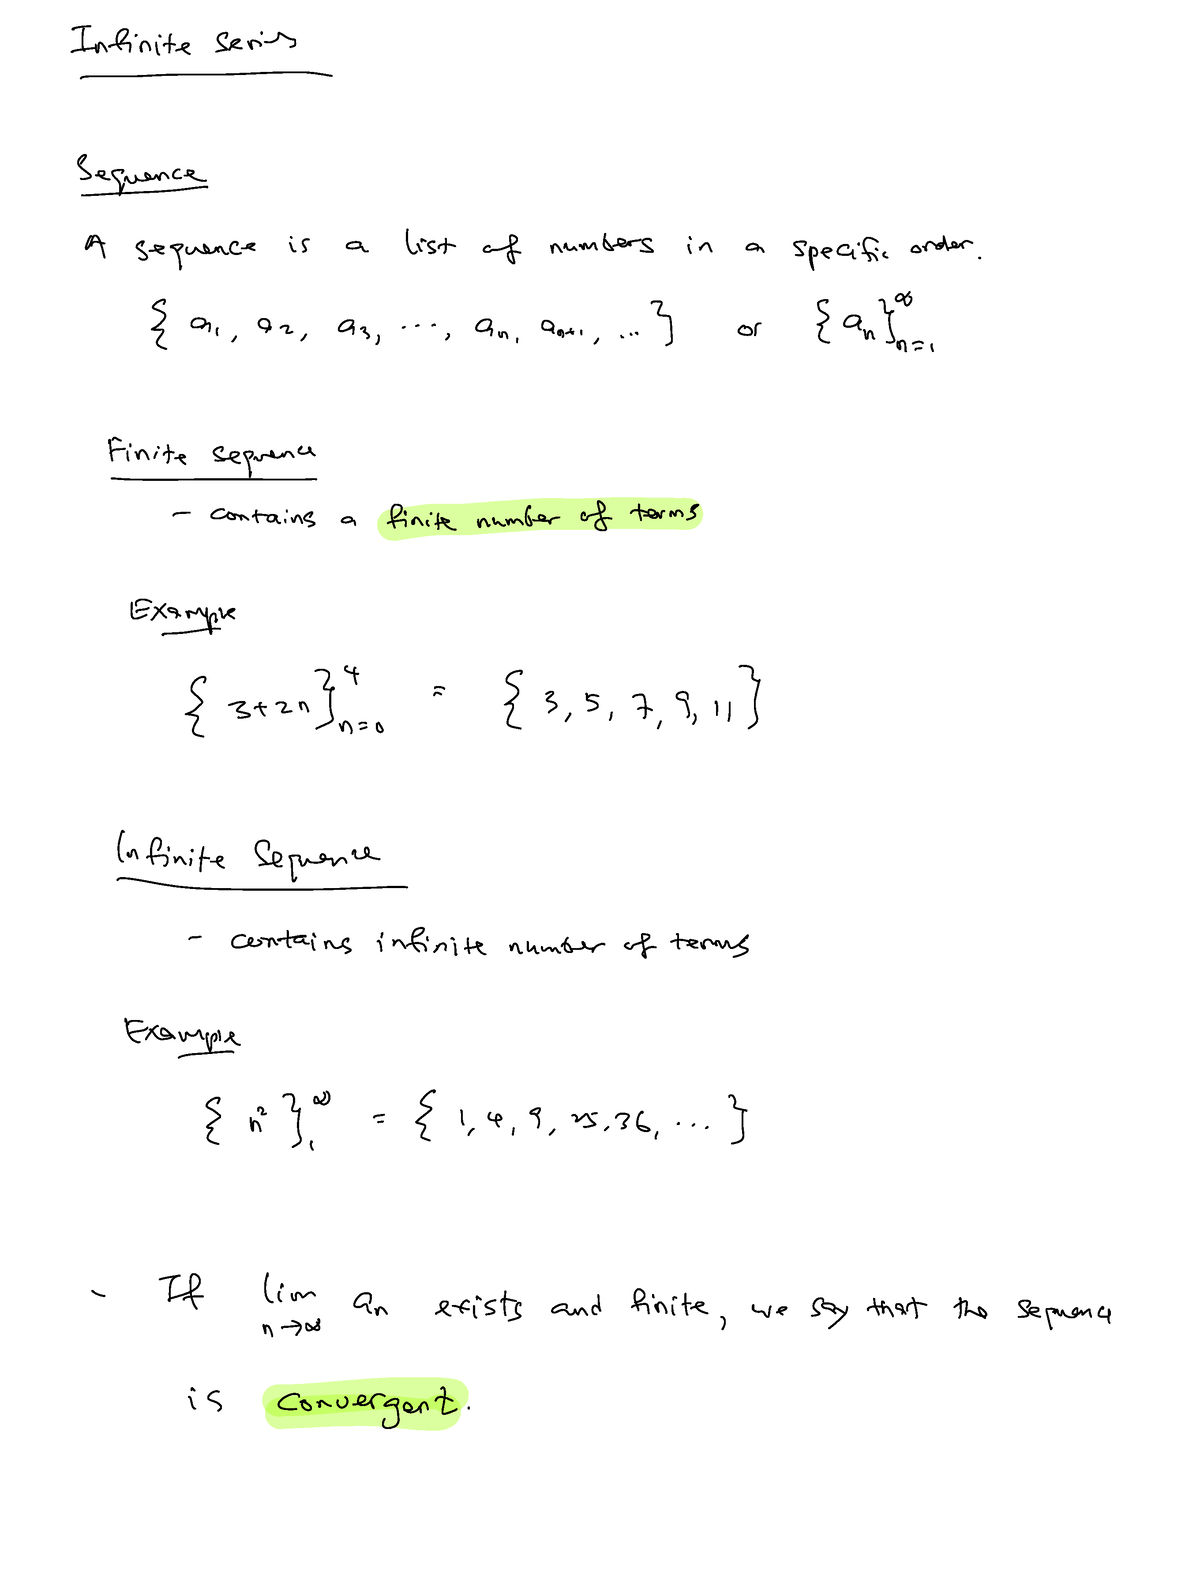 Infinite Series
Sequence
A sequence is a list of numbers in a specific order.
{ a₁, a₂, a₃, ..., aₙ, aₙ₊₁, ... } or {aₙ}ₙ₌₁^∞
Finite sequence
- contains a finite number of terms
Example
{ 3+2n }ₙ₌₀^4 = { 3, 5, 7, 9, 11 }
Infinite Sequence
- contains infinite number of terms
Example
{ n² }₁^∞ = { 1, 4, 9, 25, 36, ... }
- If lim n→∞ aₙ exists and finite, we say that the sequence
is convergent.